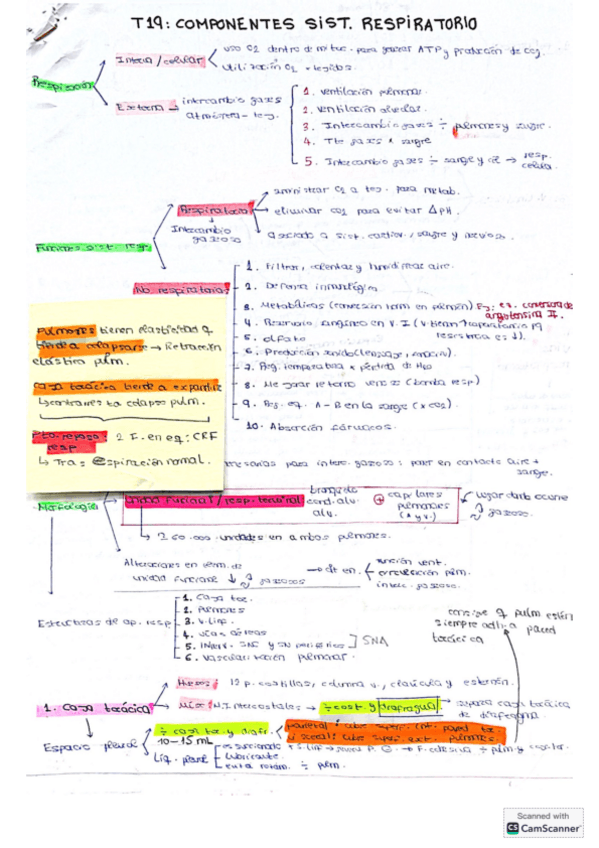 T19: COMPONENTES SIST. RESPIRATORIO
uso O2 dentro de mitoc. para generar ATP y producción de CO2
Interna / celular
utilización O2 tejidos.
Respiración
Externa → intercambio gases
atmósfera - tej.
1. Ventilación pulmonar.
2. Ventilación alveolar.
3. Intercambio gases ÷ pulmones y sangre.
4. Tte gases x sangre
5. Intercambio gases ÷ sangre y cél → resp. celular.
suministrar O2 a tej. para metab.
Respiratoria → eliminar CO2 para evitar ΔpH.
Intercambio gaseoso
asociado a sist. cardiov., sangre y nervios.
Funciones sist. resp.
No respiratorias
1. Filtrar, calentar y humidificar aire.
2. Defensa inmunológica
3. Metabólicas (conversión horm en pulmón) Ej: conversión de angiotensina II.
4. Reservorio sanguíneo en V. I
resistencia es ↓).
5. olfato
6. Producción sonido (lenguaje,
7. Reg. temperatura x pérdida de H2O
8. Mejorar retorno venoso (bomba resp)
9. Reg. eq. A-B en la sangre (x CO2).
10. Absorción fármacos.
Pulmones: tienen elasticidad q
tiende a colapsarse → Retracción
elástica pulm.
Caja torácica tiende a expandirse
↳ contrarresta colapso pulm.
Pto. reposo: 2 F. en eq: CRF
resp
↳ Tras espiración normal.
para interc. gaseoso: poner en contacto aire + sangre.
Morfología
Unidad Funcional / resp. terminal
bronquiolo
cond. alv.
alv.
⊕ capilares
pulmonares
(A y V.)
lugar donde ocurre
gaseoso.
↳ 260.000 unidades en ambos pulmones.
Alteraciones en
unidad funcional ↓
gaseosos
→ dt en.
función vent.
circulación pulm.
interc. gaseoso.
Estructuras de ap. resp
1. Caja tor.
2. Pulmones
3. V. linf.
4. vías aéreas
5. Inerv. SNC y SN periférico
SNA
6. Vascularización pulmonar.
consigue q pulm estén
siempre adh a pared
torácica
1. Caja torácica
Huesos: 12 p. costillas, columna v., clavícula y esternón.
Músc: M. Intercostales → ÷ cost. y diafragma → separa caja torácica
de diafragma
Espacio pleural
÷ caja tor. y diafr.
10-15 mL
parietal: cubre super. int. pared tor.
visceral: cubre super. ext. pulmones.
Líq. pleural
lubricante.
evita rozam. ÷ pulm.
Scanned with
CS CamScanner